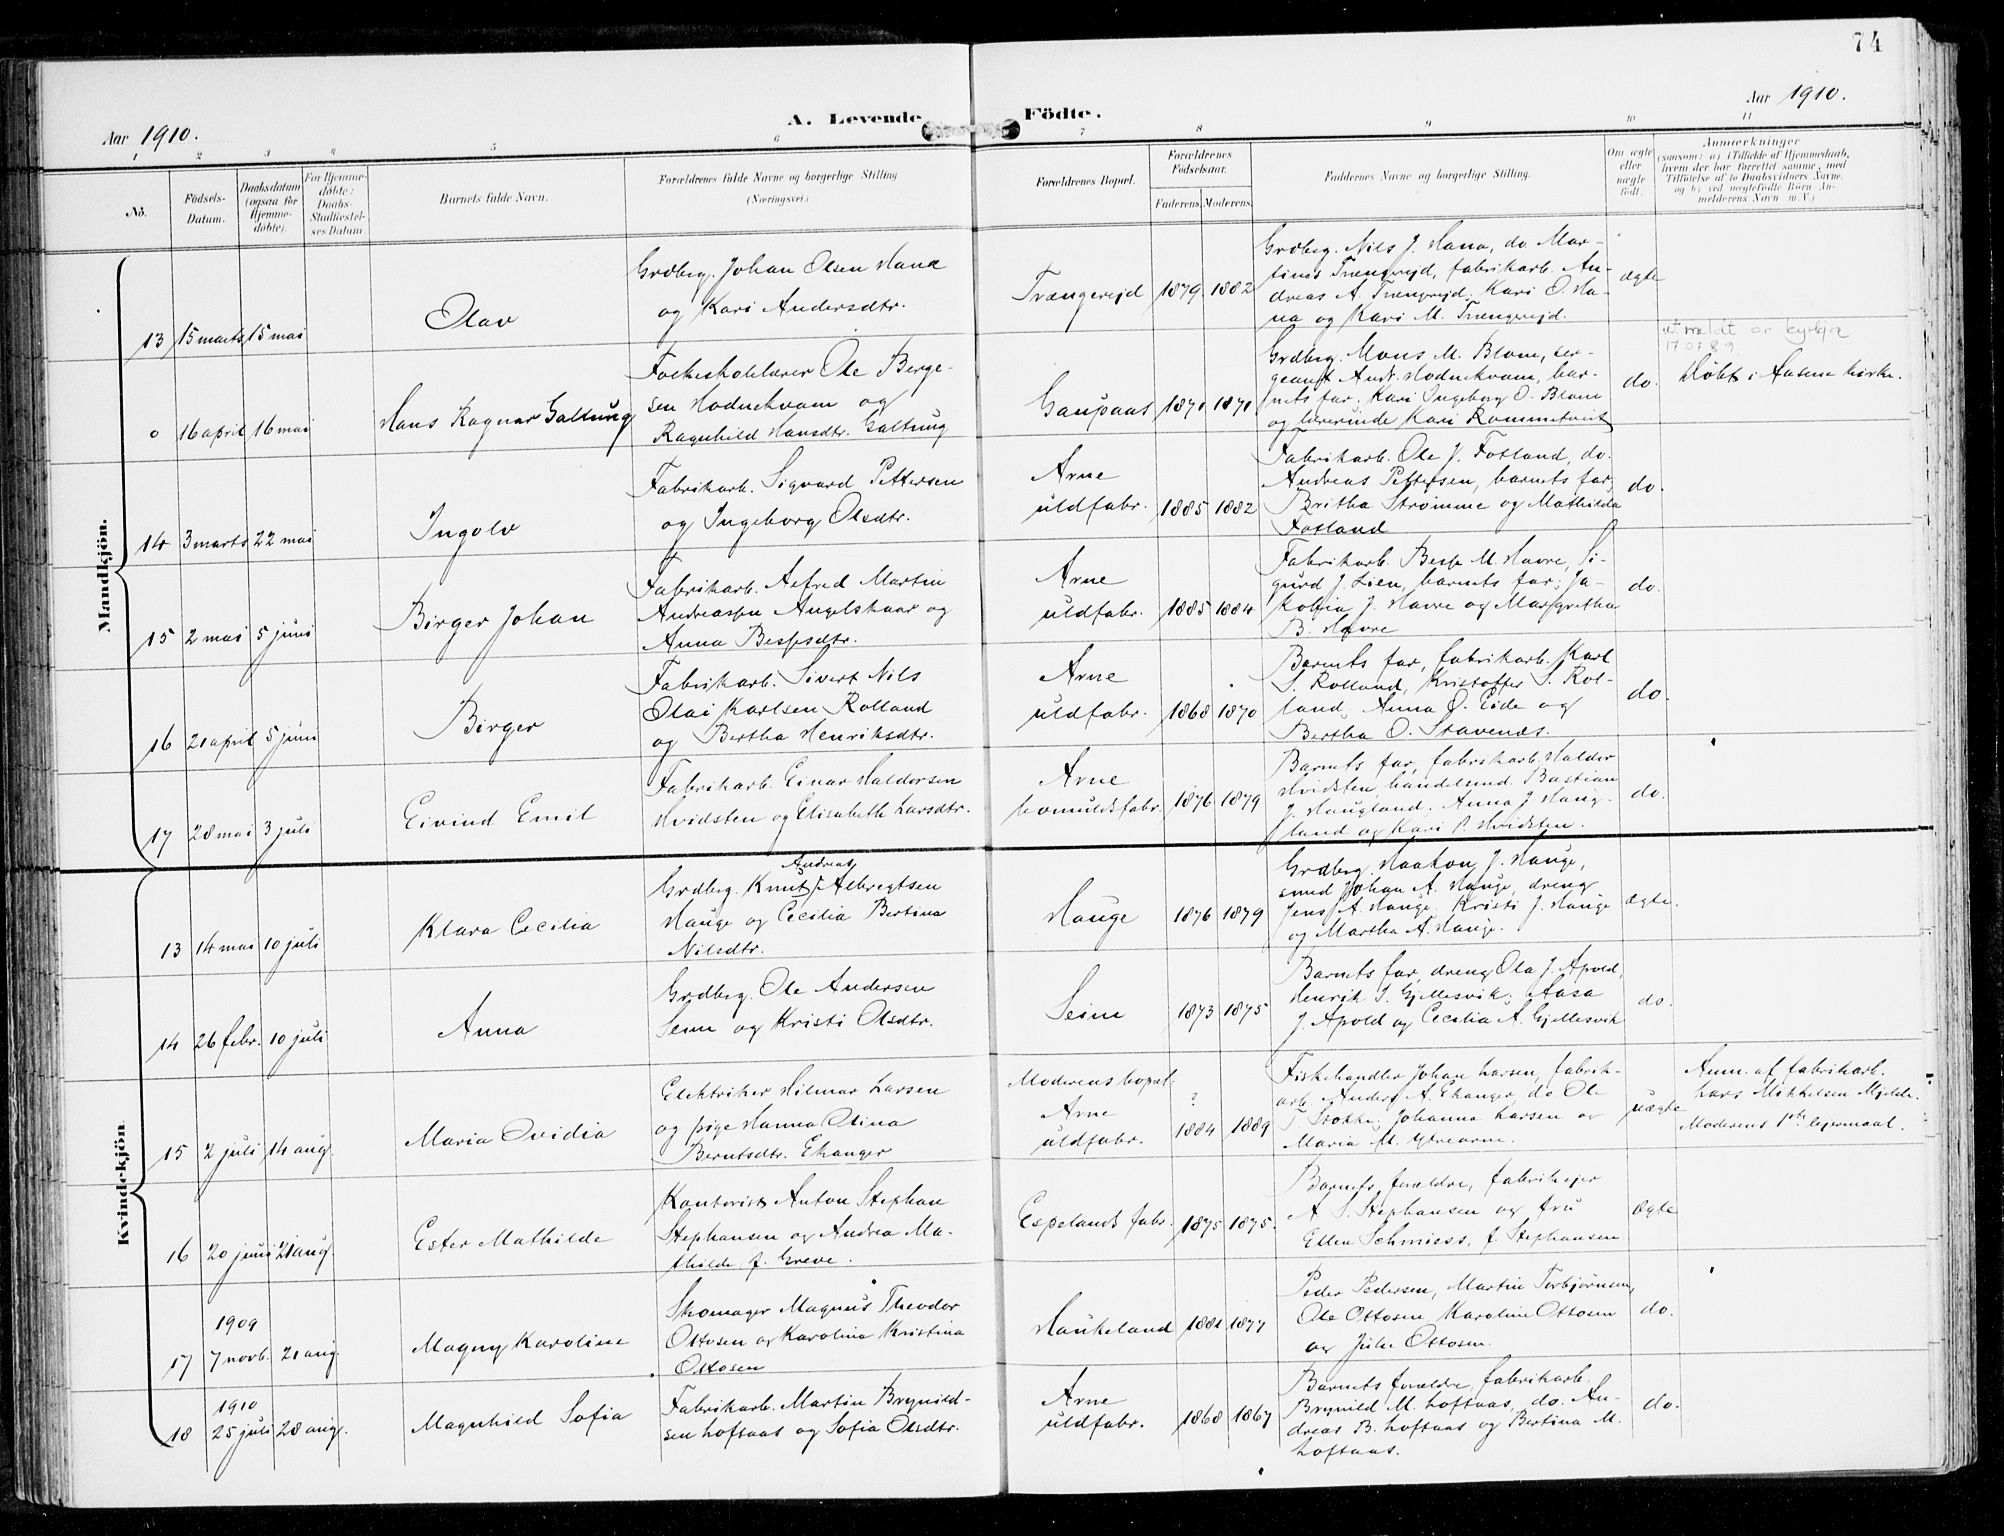 74
Aar 1910.
A. Levende Födte.
Aar 1910.
1 2 3 4 5 6 7 8 9 10 11
No.
Födsels-Datum.
Daabsdatum (ogsaa for Hjemmedöbte).
For Hjemmedöbte: Daabs-Stadfæstelses Datum.
Barnets fulde Navn.
Forældrenes fulde Navne og borgerlige Stilling (Næringsvei.)
Forældrenes Bopæl.
Forældrenes Födselsaar.
Faderens. Moderens.
Faddernes Navne og borgerlige Stilling.
Om ægte eller uægte födt.
Anmærkninger
(saasom: a) i Tilfælde af Hjemmedaab, hvem der har forrettet samme, med Tilföielse af to Daabsvidners Navne. og b) ved uægtefödte Börn Anmelderens Navn m.V.)
Mandkjön.
13
15 marts
15 mai
Olav
Grdbrg. Johan Olsen Hana
og Kari Andersdtr.
Trængereid
1879
1882
Grdbrg. Nils J. Hana, do. Mar-
tinus Trængereid, fabrikarb. An-
dreas A. Trængereid. Kari O. Ha-
na og Kari M. Trængereid.
ægte
0
16 april
16 mai
Hans Ragnar Galtung
Folkeskolelærer Ole Berge-
sen Hodnekvam og
Ragnhild Hansdtr. Galtung
Gaupaas
1871
1871
Grdbrg. Mons M. Blom, ser-
geant Andr. Hodnekvam, bar-
nets far. Kari Ingeborg O. Blom
og lærerinde Kari Rommetveit
do.
utmeldt or kyrkja
170789
Døbt i Aasene kirke.
14
3 marts
22 mai
Ingolv
Fabrikarb. Sigvard Pettersen
og Ingeborg Olsdtr.
Arne
uldfabr.
1885
1882
Fabrikarb. Ole J. Fotland, do.
Andreas Pettersen, barnets far,
Britha Strømme og Mathilda
Fotland
do.
15
2 mai
5 juni
Birger Johan
Fabrikarb. Alfred Martin
Andreassen Angelskaar og
Anna Bessesdtr.
Arne
uldfabr.
1885
1884
Fabrikarb. Besse M. Havre, Si-
gurd J. Lien, barnets far; Ja-
kobia J. Havre og Margretha
B. Havre
do.
16
21 april
5 juni
Birger
Fabrikarb. Sivert Nils
Olai Karlsen Rolland
og Bertha Henriksdtr.
Arne
uldfabr.
1868
1870
Barnets far, fabrikarb. Karl
S. Rolland, Kristoffer S. Rol-
land; Anna O. Eide og
Bertha O. Stavenes.
do.
17
28 mai
3 juli
Eivind Emil
Fabrikarb. Einar Haldorsen
Hvidsten og Elisabeth Larsdtr.
Arne
bomuldsfabr.
1876
1879
Barnets far, fabrikarb. Haldor
Hvidsten, handelsmd. Bastian
J. Haugland. Anna J. Haug-
land og Kari P. Hvidsten.
do.
Kvindekjön.
13
14 mai
10 juli
Klara Cecilia
Andreas
Grdbrg. Knut Albregtsen
Hauge og Cecilia Bertina
Nilsdtr.
Hauge
1876
1879
Grdbrg. Haakon J. Hauge,
smed Johan A. Hauge, dreng
Jens A. Hauge. Kristi J. Hauge
og Martha A. Hauge.
ægte.
14
26 febr.
10 juli
Anna
Grdbrg. Ole Andersen
Seim og Kristi Olsdtr.
Seim
1873
1875
Barnets far, dreng Ola J. Apold,
Henrik S. Gjellesvik; Aasa
J. Apold og Cecilia A. Gjellesvik
do.
15
2 juli
14 aug.
Maria Ovidia
Elektriker Hilmar Larsen
og pige Hanna Olina
Berntsdtr. Ekanger
Moderens bopæl:
Arne
uldfabr.
?
1884
1889
Fiskehandler Johan Larsen, fabrik-
arb. Anders A. Ekanger, do. Ole
T. Stokke; Johanna Larsen og
Maria M. Ytrearne.
uægte
Anm. af fabrikarb.
Lars Mikkelsen Mjelde.
Moderens 1ste leiermaal.
16
20 juni
21 aug.
Ester Mathilde
Kontorist Anton Stephan
Stephansen og Andrea Ma-
thilde f. Greve.
Espelands fabr.
1875
1875.
Barnets forældre, fabrikeier
A. S. Stephansen og fru
Ellen Schmiess, f. Stephansen
ægte
17
1909
7 novb.
21 aug.
Magny Karoline
Skomager Magnus Theodor
Ottosen og Karolina Kristina
Ottosen
Haukeland
1881
1877
Peder Pedersen, Martin Torbjørnsen,
Ole Ottosen, Karoline Ottosen
og Julie Ottosen.
do.
18
1910
25 juli
28 aug.
Magnhild Sofia
Fabrikarb. Martin Brynild-
sen Loftaas og Sofia Olsdtr.
Arne
uldfabr.
1868
1867
Barnets forældre, fabrikarb.
Brynild M. Loftaas, do. An-
dreas B. Loftaas og Bertina M.
Loftaas.
do.